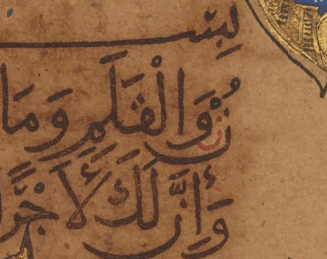 بِسْ
نْ وَالْقَلَمِ وَمَا
وَإِنَّ لَكَ لَأَجْرًا